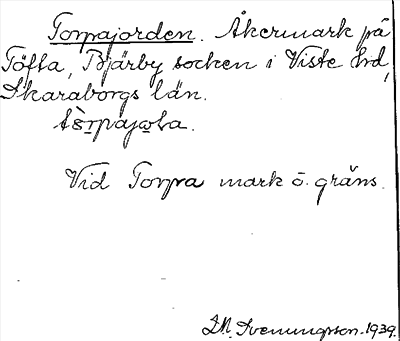 Torpajorden. Åkermark på
Töfta, Bjärby socken i Viste hd,
Skaraborgs län.
Vid Torpa mark ö. gräns.
1939.